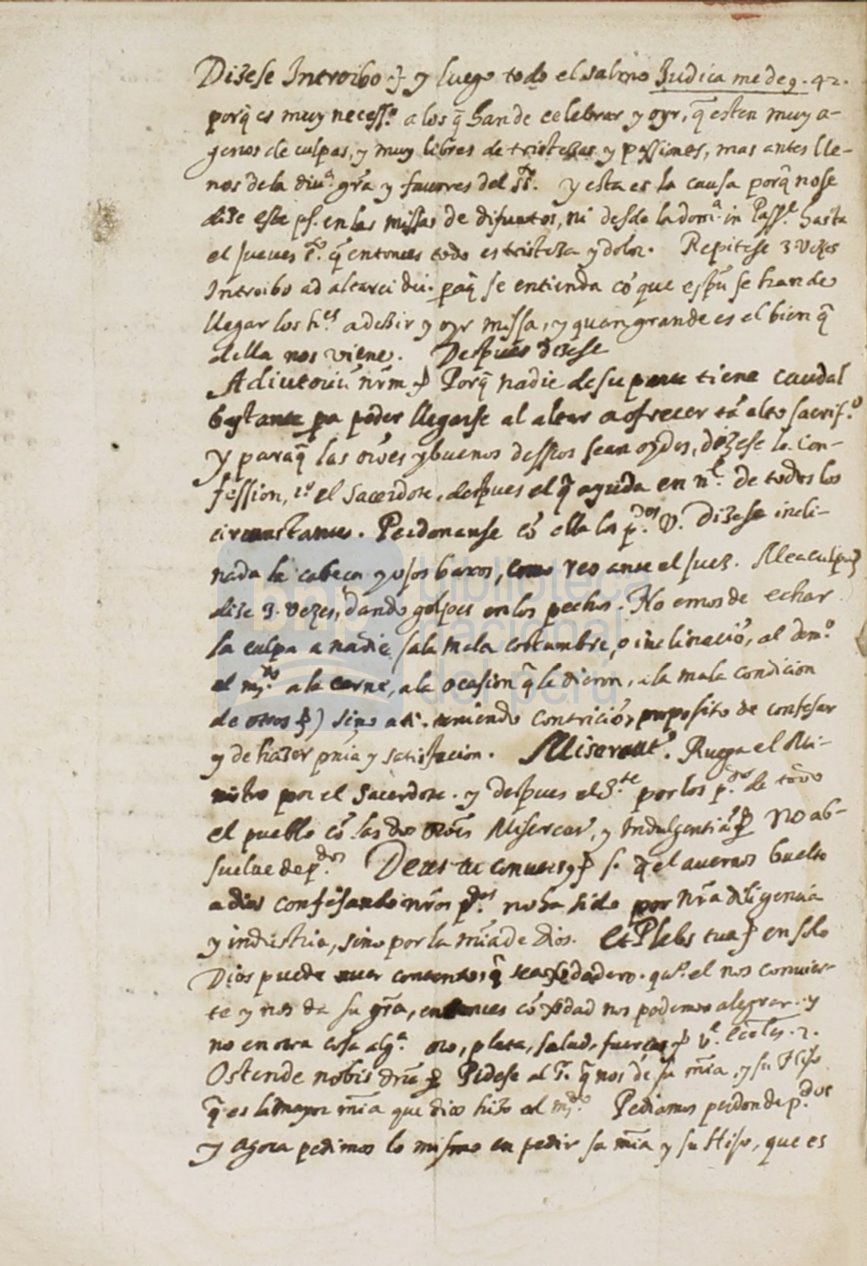 Dizese Introibo &. y luego todo el salmo Iudica me de9. 42.
porq̃ es muy necess.º a los q̃ han de celebrar y oyr, q̃ esten muy a-
genos de culpas, y muy libres de tristezas y passiones, mas antes lle-
nos de la diu.ª gr̃a y fauores del y esta es la causa porq̃ no se
dize este ps. en las missas de difuntos, ni desde la dom.ª in Pass.e hasta
el jueues s.º q̃ entonces todo es tristeza y dolor. Repitese 3 vezes
Introibo ad altare dei. paq̃ se entienda cõ que espũ se han de
llegar los h.es a dezir y oyr missa, y quan grande es el bien q̃
della nos viene. Despues dizese
Adiutoriũ nr̃m & Porq̃ nadie de su parte tiene caudal
bastante pa poder llegarse al altar a ofrecer tã alto sacrif.º
y paraq̃ las oio͂es y buenos desseos sean oydos, dizese la con-
fession, 1º el Sacerdote, despues el q̃ ayuda en n.e de todos los
circunstantes. Perdonanse cõ ella los p.dos v. Dizese incli-
nada la cabeça y ojos baxos, como reo ante el juez. Mea culpa
dize 3. vezes, dando golpes en los pechos. No emos de echar
la culpa a nadie, a la mala costumbre, o inclinaciõ, al dem.º
el m.do a la carne, a la ocasion q̃ le dieron, a la mala condicion
de otros &) sino a si. teniendo contriciõ, proposito de confesar
y de hazer pñia y satisfacion. Misereat.r Ruega el Mi-
nistro por el Sacerdote. y despues el S.te por los p.dos de todo
el pueblo cõ las dos oio͂es Misereat.r, y Indulgentiã & No ab-
suelue de p.dos Deus tu conuersus & s. q̃ el auernos buelto
a dios confesando nr̃os p.dos no ha sido por nr̃a diligencia
y industria, sino por la mĩa de Dios. Et Plebs tua & en solo
Dios puede auer contento q̃ sea vdadero. qdo. el nos conuier-
te y nos da su gr̃a, entonces cõ vdad nos podemos alegrar. y
no en otra cosa alg.ª oro, plata, salud, fuerças & v.e Eccles. 2.
Ostende nobis dñe & Pidese al P. q̃ nos dé su mĩa, y su Hijo
q̃ es la mayor mĩa que dios hizo al m.do Pediamos perdon de p.dos
y agora pedimos lo mismo en pedir sa mĩa y su Hijo, que es
biblioteca
nacional
del perú